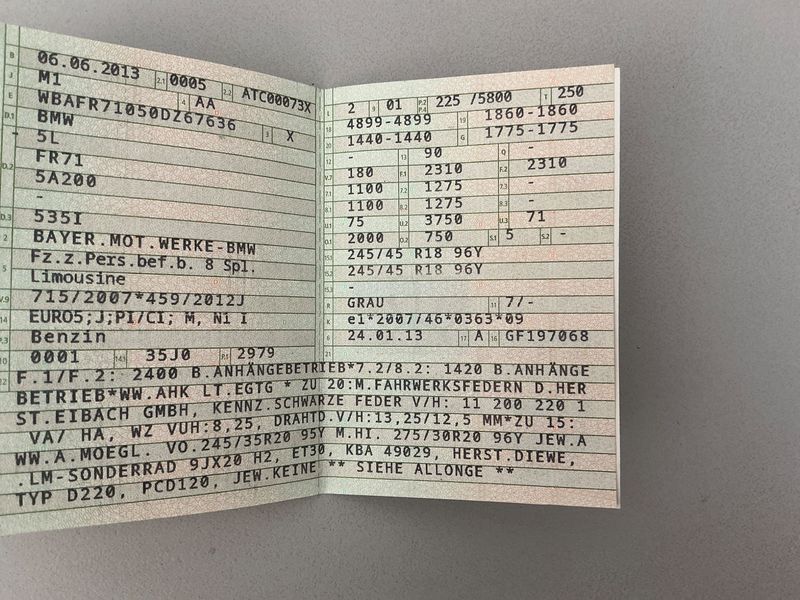 B 06.06.2013 2.1 0005 2.2 ATC00073X
J M1 4 AA
E WBAFR71050DZ67636 3 X
D.1 BMW
5L
D.2 FR71
5A200
-
D.3 535I
2 BAYER.MOT.WERKE-BMW
5 Fz.z.Pers.bef.b. 8 Spl.
Limousine
V.9 715/2007*459/2012J
14 EURO5;J;PI/CI; M, N1 I
P.3 Benzin
10 0001 14.1 35J0 P.1 2979
L 2 9 01 P.2 P.4 225 /5800 T 250
18 4899-4899 19 1860-1860
20 1440-1440 G 1775-1775
12 - 13 90 Q -
V.7 180 F.1 2310 F.2 2310
7.1 1100 7.2 1275 7.3 -
8.1 1100 8.2 1275 8.3 -
U.1 75 U.2 3750 U.3 71
O.1 2000 O.2 750 S.1 5 S.2 -
15.1 245/45 R18 96Y
15.2 245/45 R18 96Y
15.3 -
R GRAU 11 7/-
K e1*2007/46*0363*09
6 24.01.13 17 A 16 GF197068
21
22 F.1/F.2: 2400 B.ANHÄNGEBETRIEB*7.2/8.2: 1420 B.ANHÄNGE
BETRIEB*WW.AHK LT.EGTG * ZU 20:M.FAHRWERKSFEDERN D.HER
ST.EIBACH GMBH, KENNZ.SCHWARZE FEDER V/H: 11 200 220 1
VA/ HA, WZ VUH:8,25, DRAHTD.V/H:13,25/12,5 MM*ZU 15:
WW.A.MOEGL. VO.245/35R20 95Y M.HI. 275/30R20 96Y JEW.A
.LM-SONDERRAD 9JX20 H2, ET30, KBA 49029, HERST.DIEWE,
TYP D220, PCD120, JEW.KEINE ** SIEHE ALLONGE **